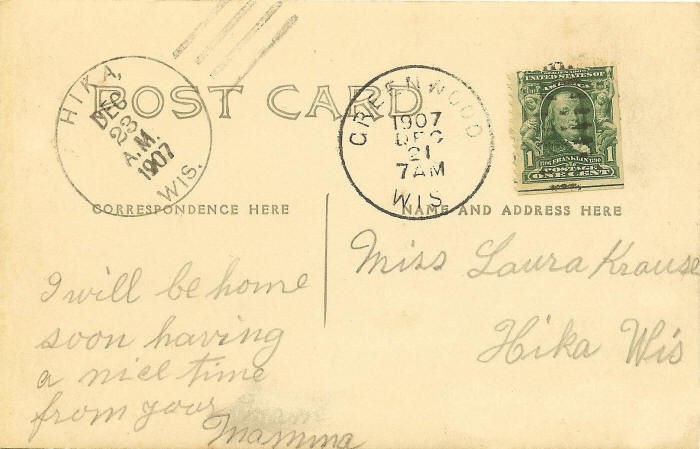 HIKA,
DEC
23
A.M.
1907
WIS.
POST CARD
GREENWOOD
1907
DEC
21
7AM
WIS.
UNITED STATES OF
AMERICA
1 1
FRANKLIN
POSTAGE
ONE CENT
CORRESPONDENCE HERE
NAME AND ADDRESS HERE
I will be home
soon having
a nice time
from your
Mamma
Miss Laura Krause
Hika Wis